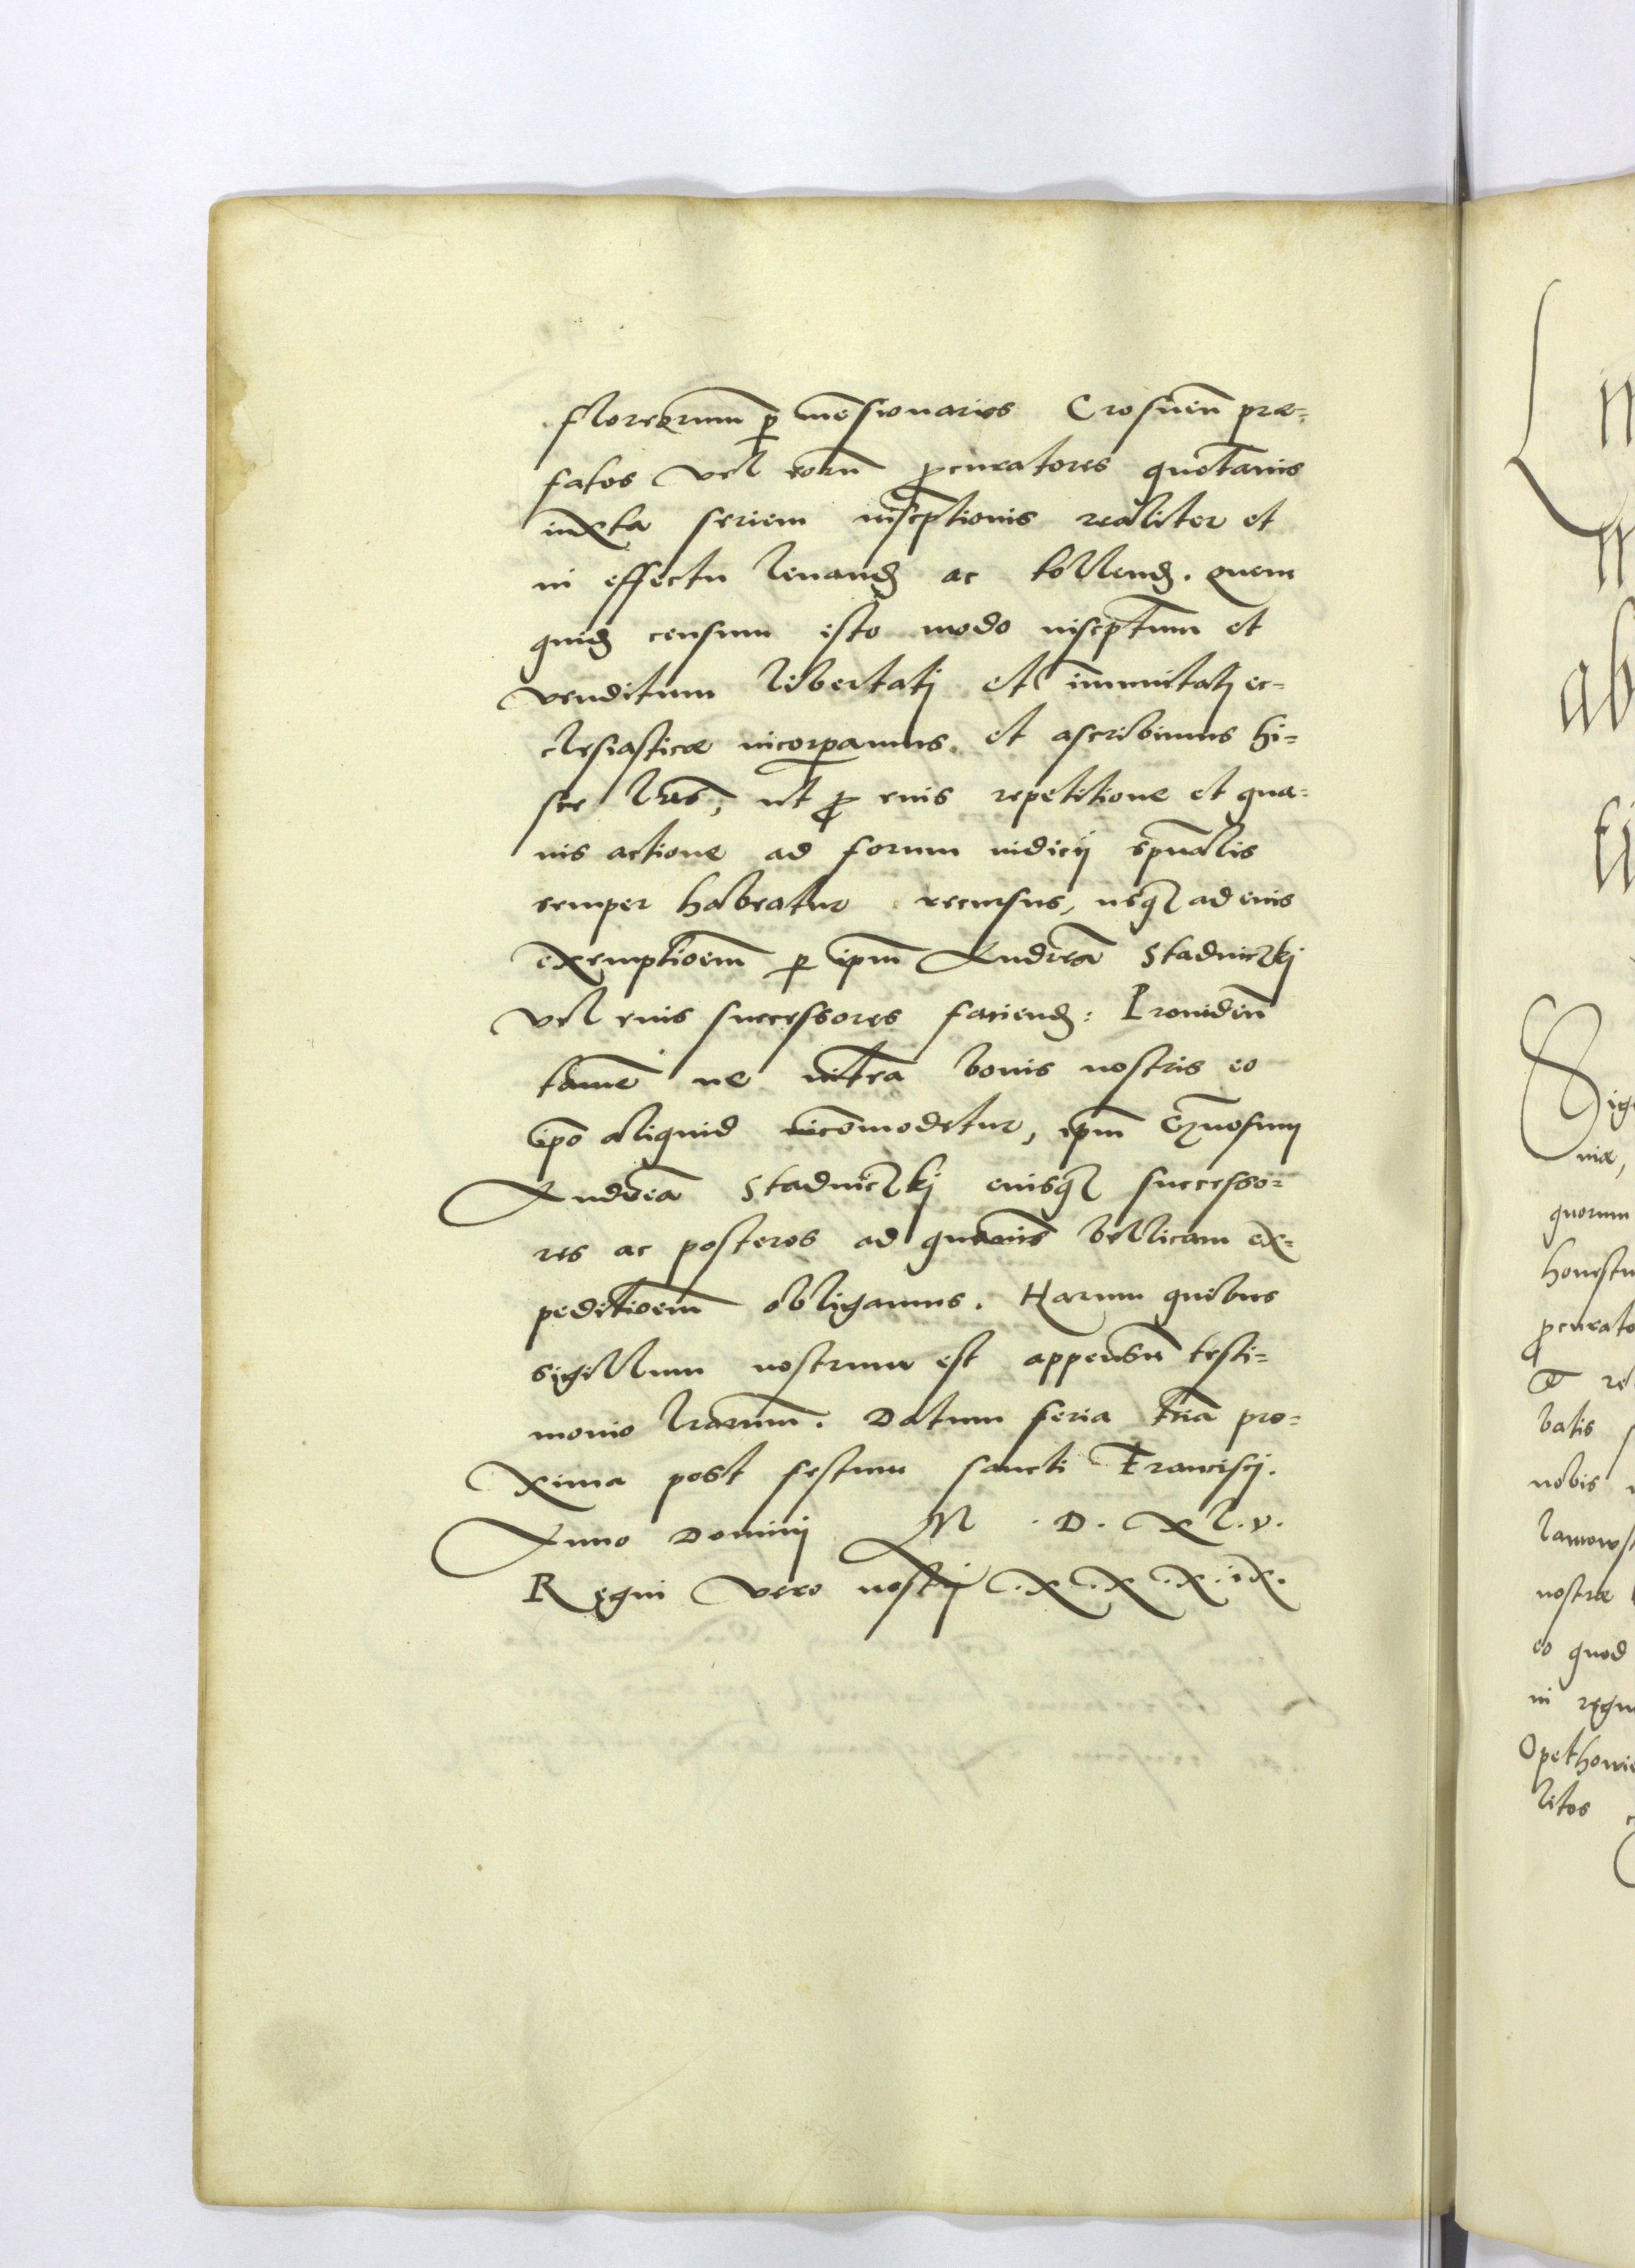 florenorum p mãsionarios Crosneñ præ=
fatos vel eorũ ꝓcuratores quotãnis
iuxta seriem inscptionis realiter et
in effectu leuand ac tollend. quem
quid censum isto modo inscptum et
venditum libertatj et im̃unitatj ec=
clesiasticæ incorpamus. et ascribimus hi=
sce lris, ut ꝓ eius repetitione et qua=
uis actione ad forum iudicij spũalis
semper habeatur recursus, usq ad eius
exemptioem p ipm Andreã Stadniczkj
vel eius successores faciend: Prouideñ
tamẽ ne vltra bonis nostris eo
ipo aliquid incõmodetur, ipm Gñosum
Andreã Stadniczkj eiusq successo=
res ac posteros ad quamuis bellicam ex=
peditioem obligamus. Harum quibus
sigillum nostrum est appensũ testi=
monio lrarum. Datum feria tr̃ia pro=
xima post festum sancti Franciscj.
Anno Dominj M . D . XL . v .
Regni vero nostrj . X . X . X . ix .
L
ab
Sig
niæ,
quorum
honestu
ꝓcurato
re
batis
nobis
lanowsk
nostræ
eo quod
in regn
Opethowie
litos